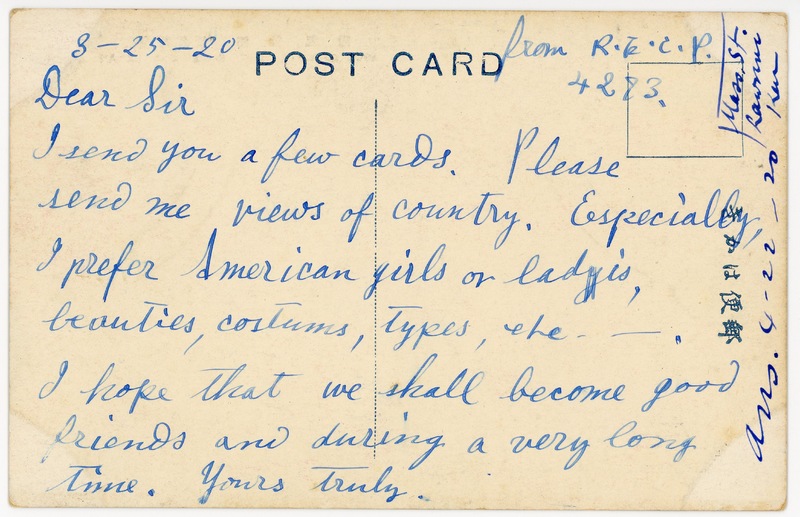 3-25-20
POST CARD
from R.E.C.P.
4273.
Dear Sir
I send you a few cards. Please
send me views of country. Especially,
I prefer American girls or ladyis,
beauties, costums, types, etc - — .
I hope that we shall become good
friends and during a very long
time. Yours truly.
きかは便郵
Mass. St.
Lawrence
Kan
Ans. 4-22-20